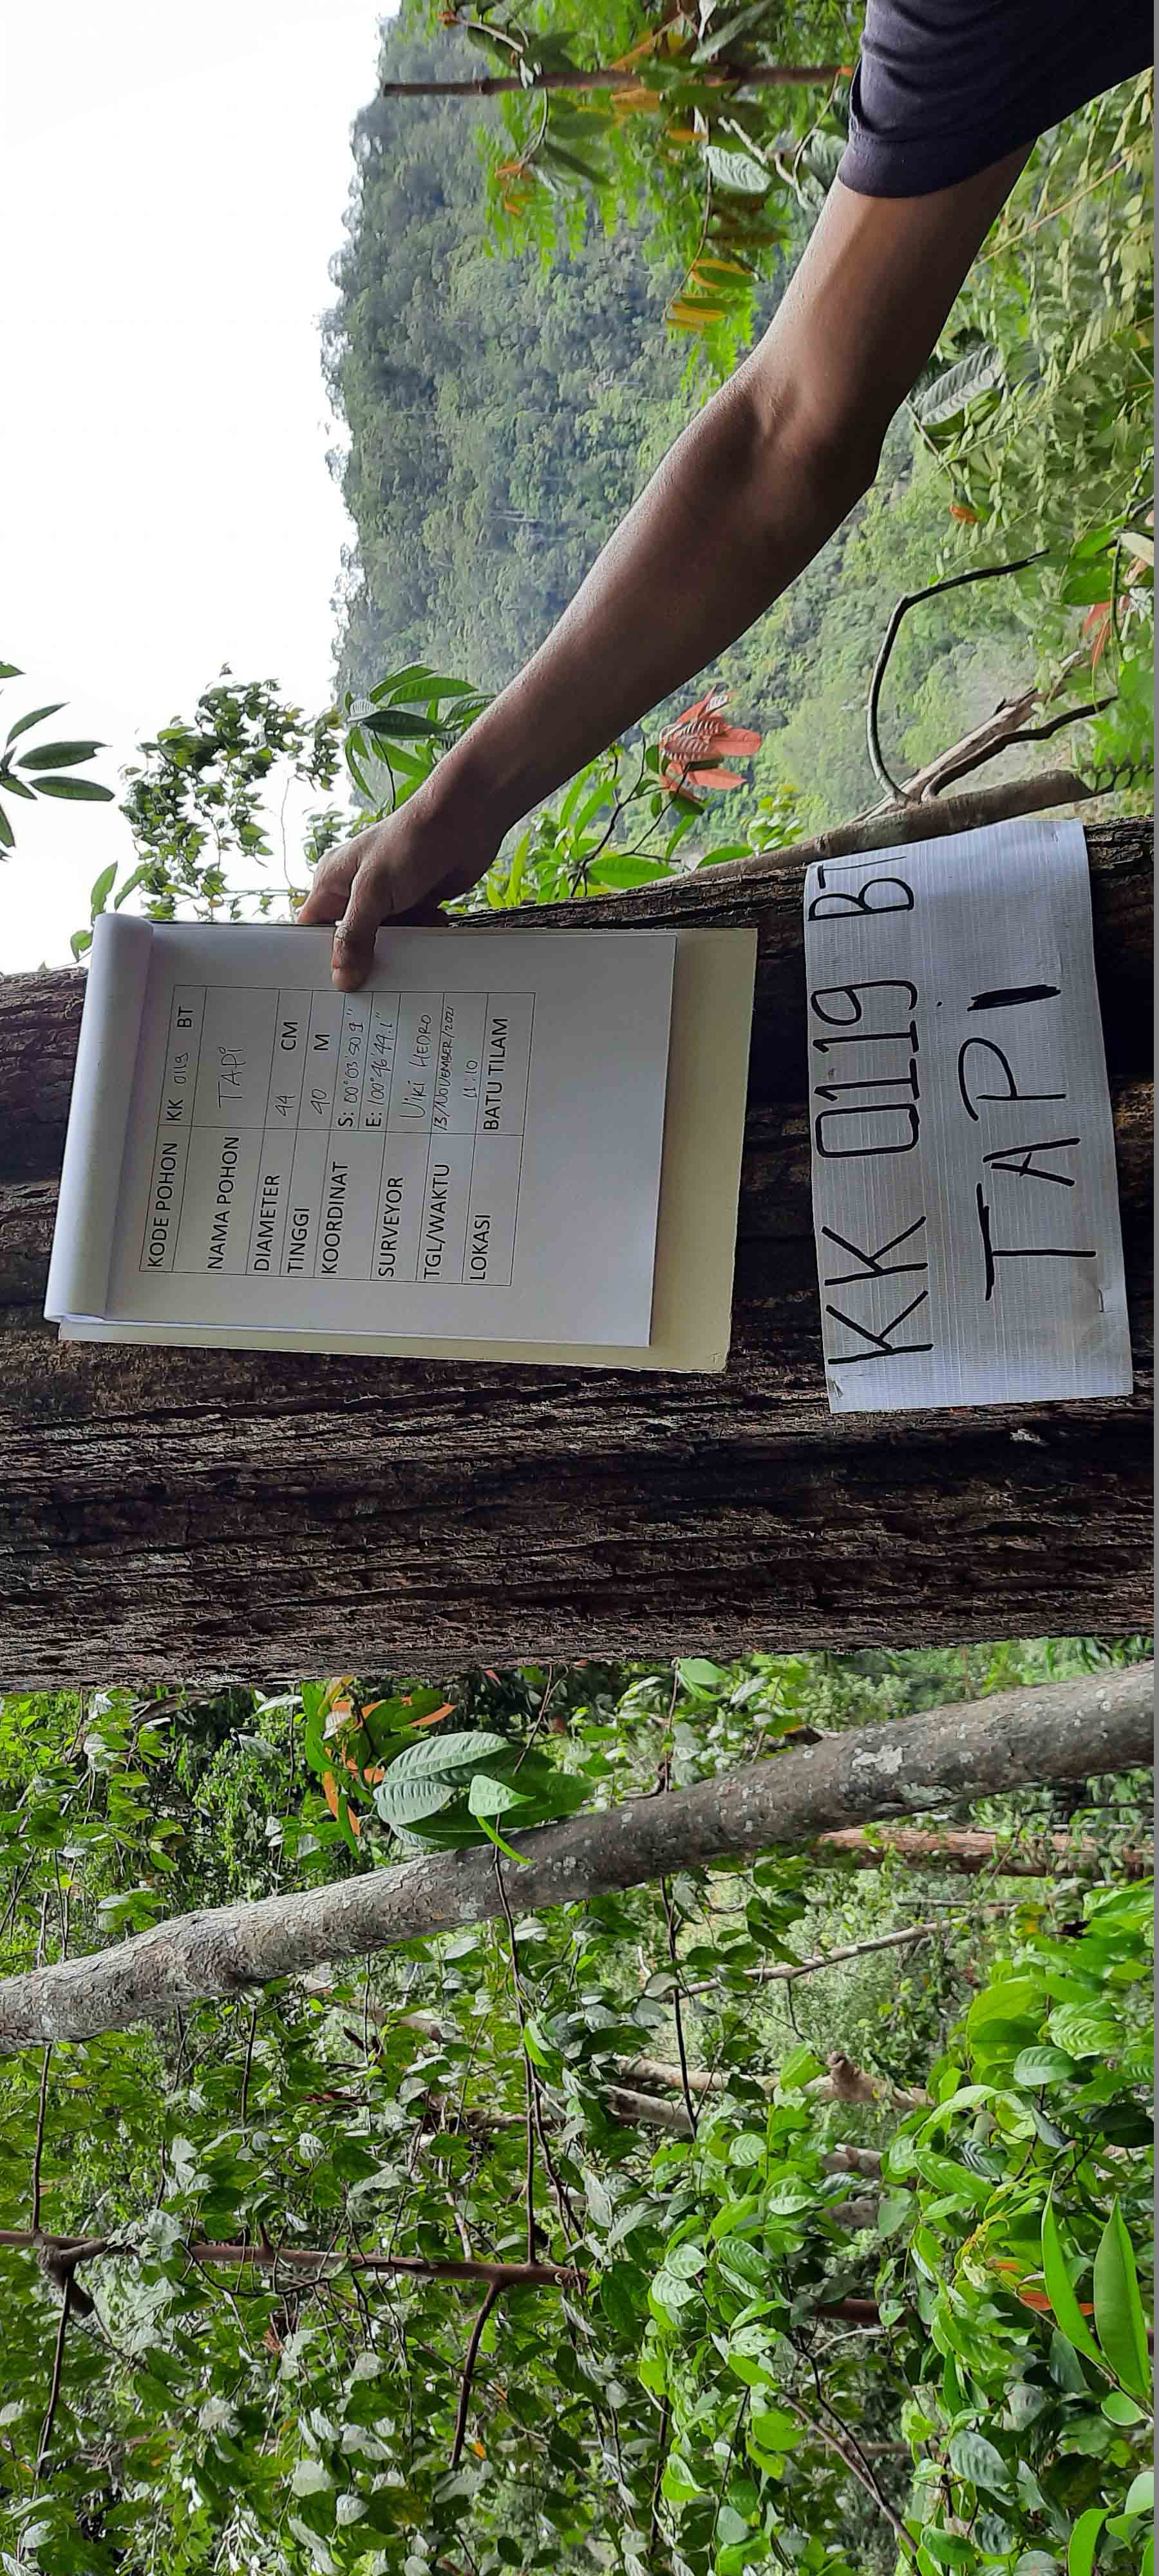 KODE POHON KK 0119 BT
NAMA POHON TAPi
DIAMETER 44 CM
TINGGI 40 M
KOORDINAT S: 00°03'50.9"
E: 100°46'49.1"
SURVEYOR Uiki HEDRO
TGL/WAKTU 13/NOVEMBER/2021
11:10
LOKASI BATU TILAM
KK 0119 BT
TAPi